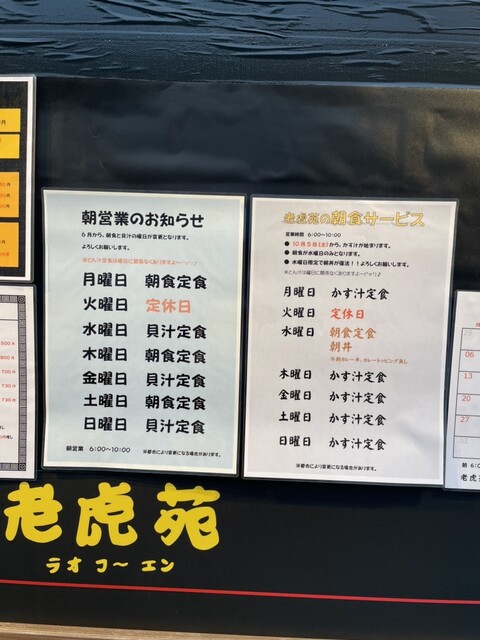 朝営業のお知らせ
6月から、朝食と貝汁の曜日が変更となります。
よろしくお願いします。
※とん汁定食は曜日に関係なくありますよ〜(^_^)♪
月曜日 朝食定食
火曜日 定休日
水曜日 貝汁定食
木曜日 朝食定食
金曜日 貝汁定食
土曜日 朝食定食
日曜日 貝汁定食
朝営業 6:00〜10:00
※都合により変更になる場合があります。
老虎苑の朝食サービス
営業時間 6:00〜10:00
● 10月5日(土)から、かす汁が始まります。
● 朝食が水曜日のみとなります。
● 水曜日限定で朝丼が復活！！よろしくお願いします。
※とん汁は曜日に関係なくありますよ〜(^o^)♪
月曜日 かす汁定食
火曜日 定休日
水曜日 朝食定食
朝丼
※朝カレー丼、カレートッピング無し
木曜日 かす汁定食
金曜日 かす汁定食
土曜日 かす汁定食
日曜日 かす汁定食
※都合により変更になる場合があります。
06
13
20
27
老虎苑
ラオ コ〜 エン